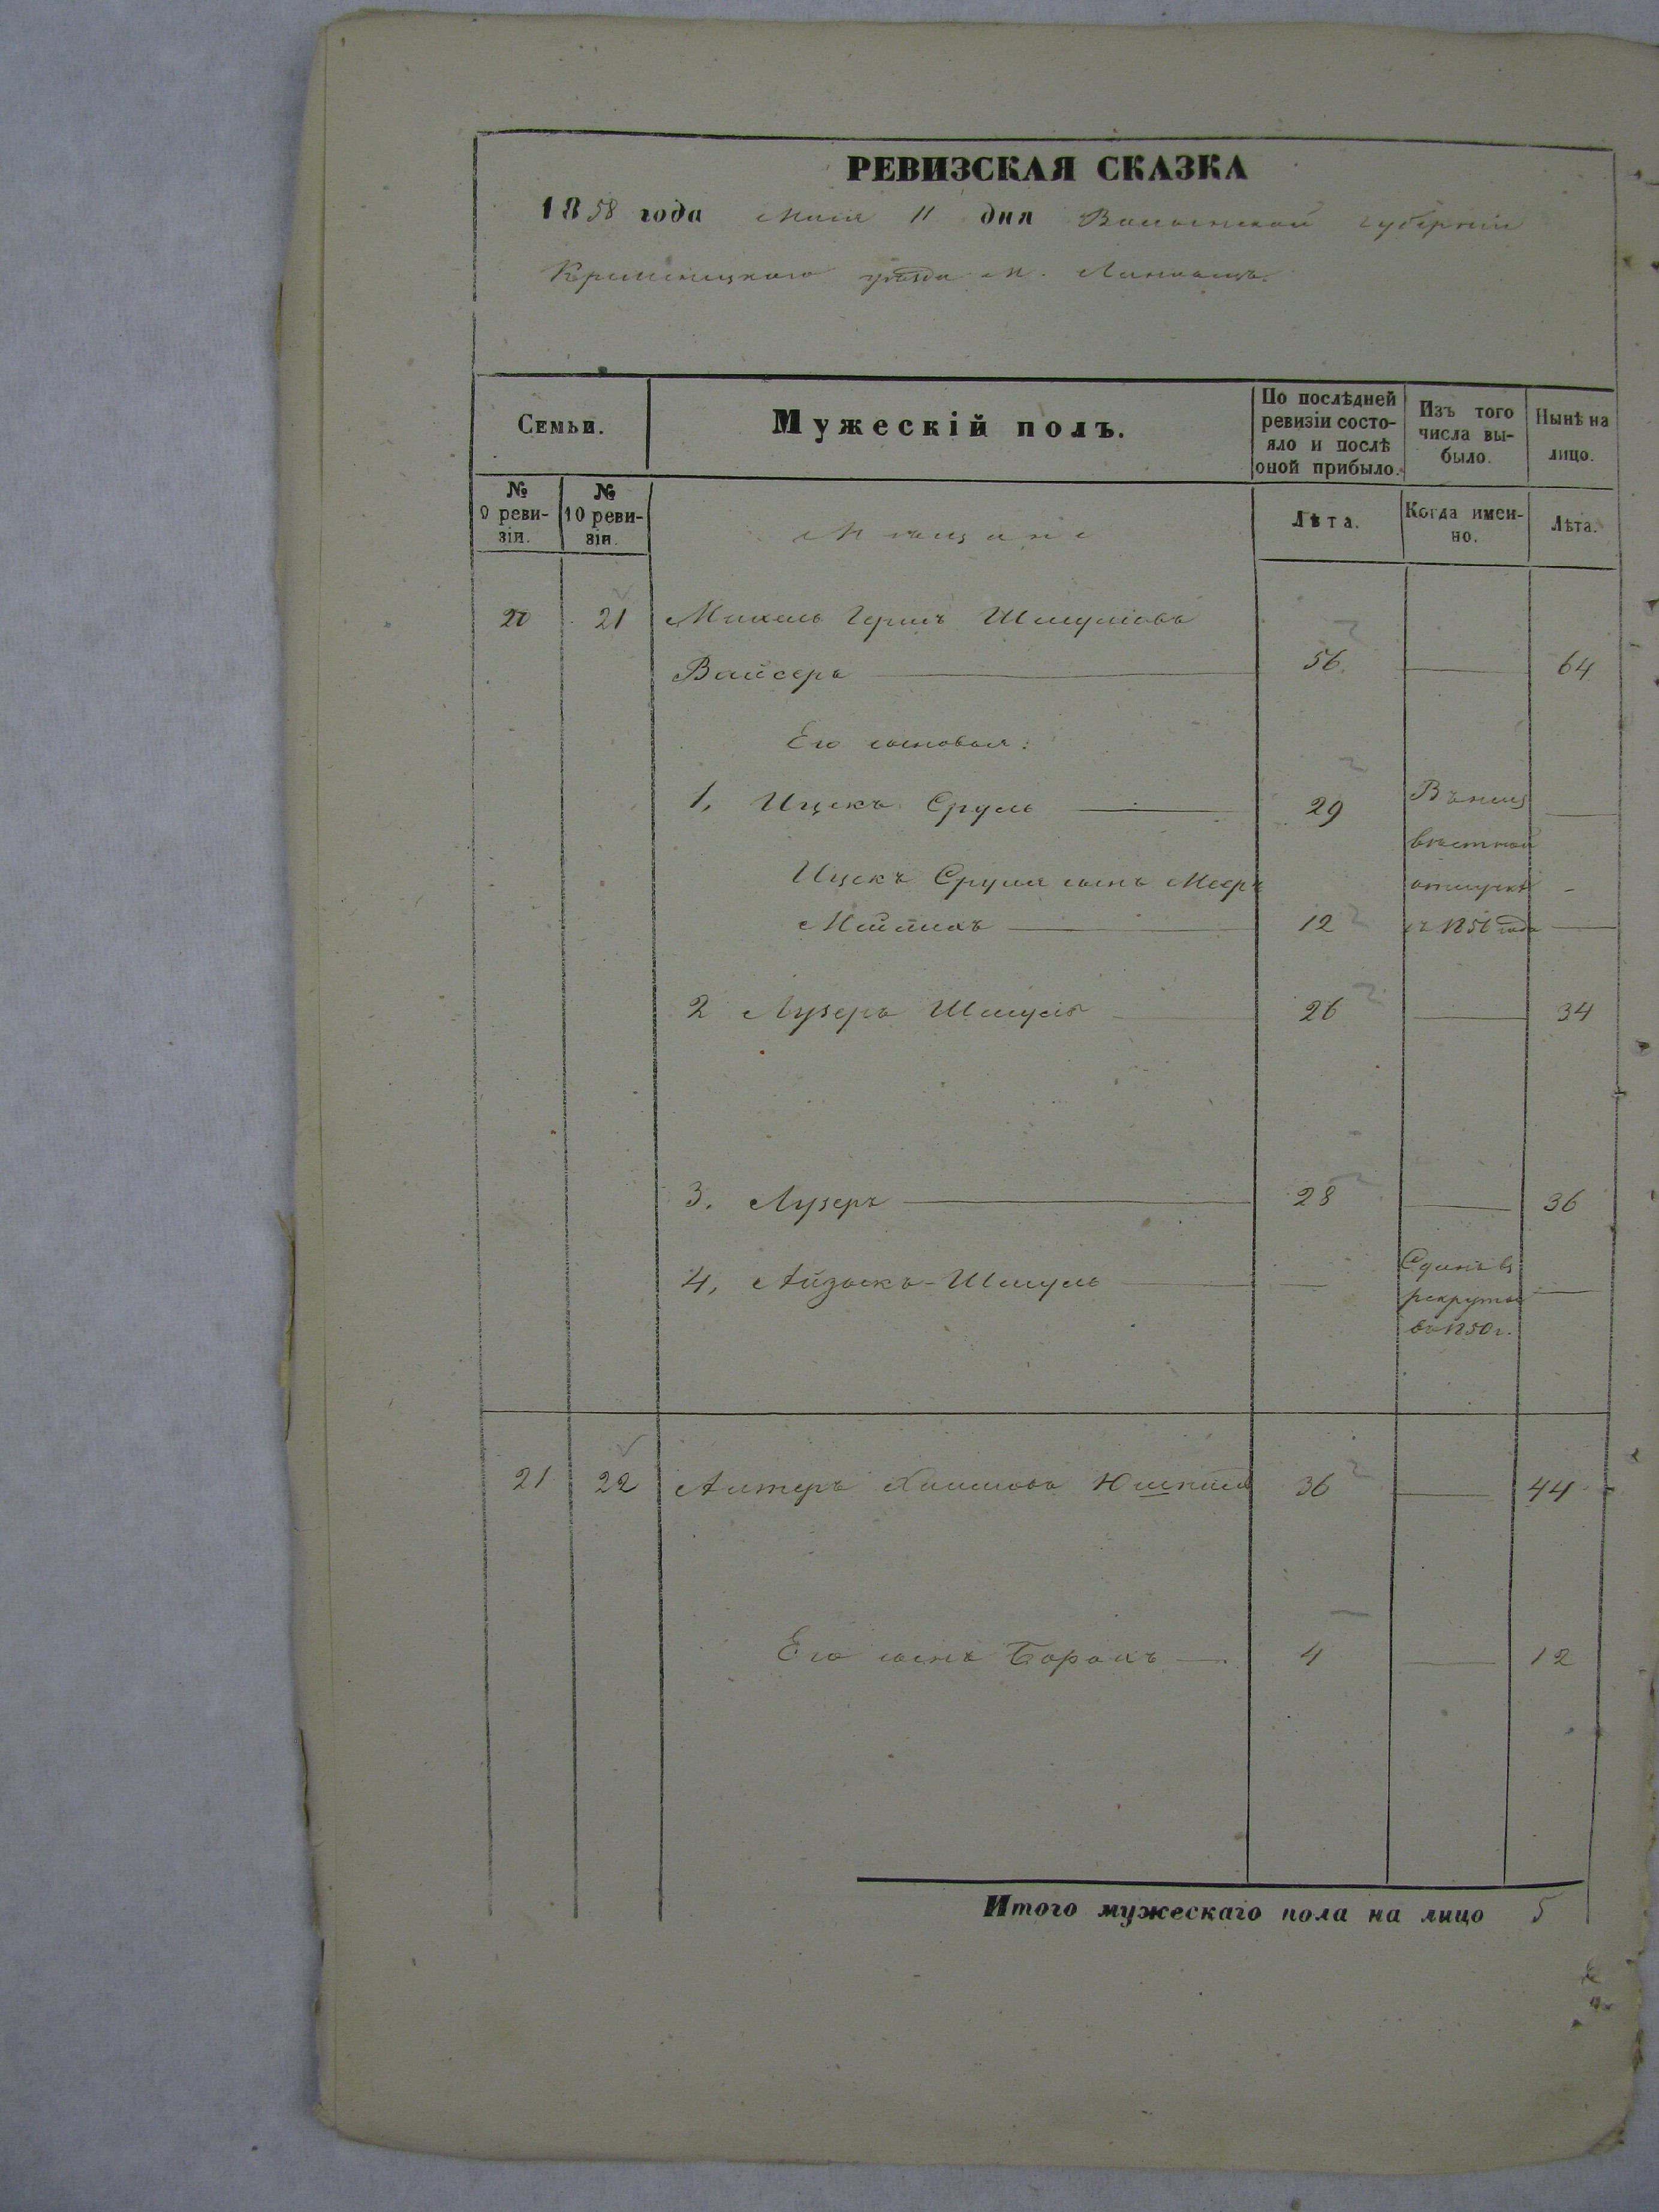 РЕВИЗСКАЯ СКАЗКА
1858 года мая 11 дня Волынской губернии
Кременецкаго уѣзда м. Лановецъ.
Семьи.
Мужескій полъ.
По послѣдней ревизіи состо-
яло и послѣ
оной прибыло.
Изъ того
числа вы-
было.
Нынѣ на
лицо.
№
9 реви-
зіи.
№
10 реви-
зіи.
Мѣщане
Лѣта.
Когда имен-
но.
Лѣта.
20 21 Михель Гершъ Шмулiовъ
Вайсеръ 56. 64
Его сыновья:
1, Ицекъ Сруль 29
Въ неиз
вѣстной
отлучкѣ
съ 1856 года
Ицекъ Сруля сынъ Мееръ
12
2 Лузеръ Шмуль 26 34
3. Лузеръ 28 36
4, Айзыкъ-Шмуль
Сданъ въ
рекруты
въ 1850 г.
21 22 Алтеръ Хаимовъ 36 44
Его сынъ Борахъ 4 12
Итого мужескаго пола на лицо 5